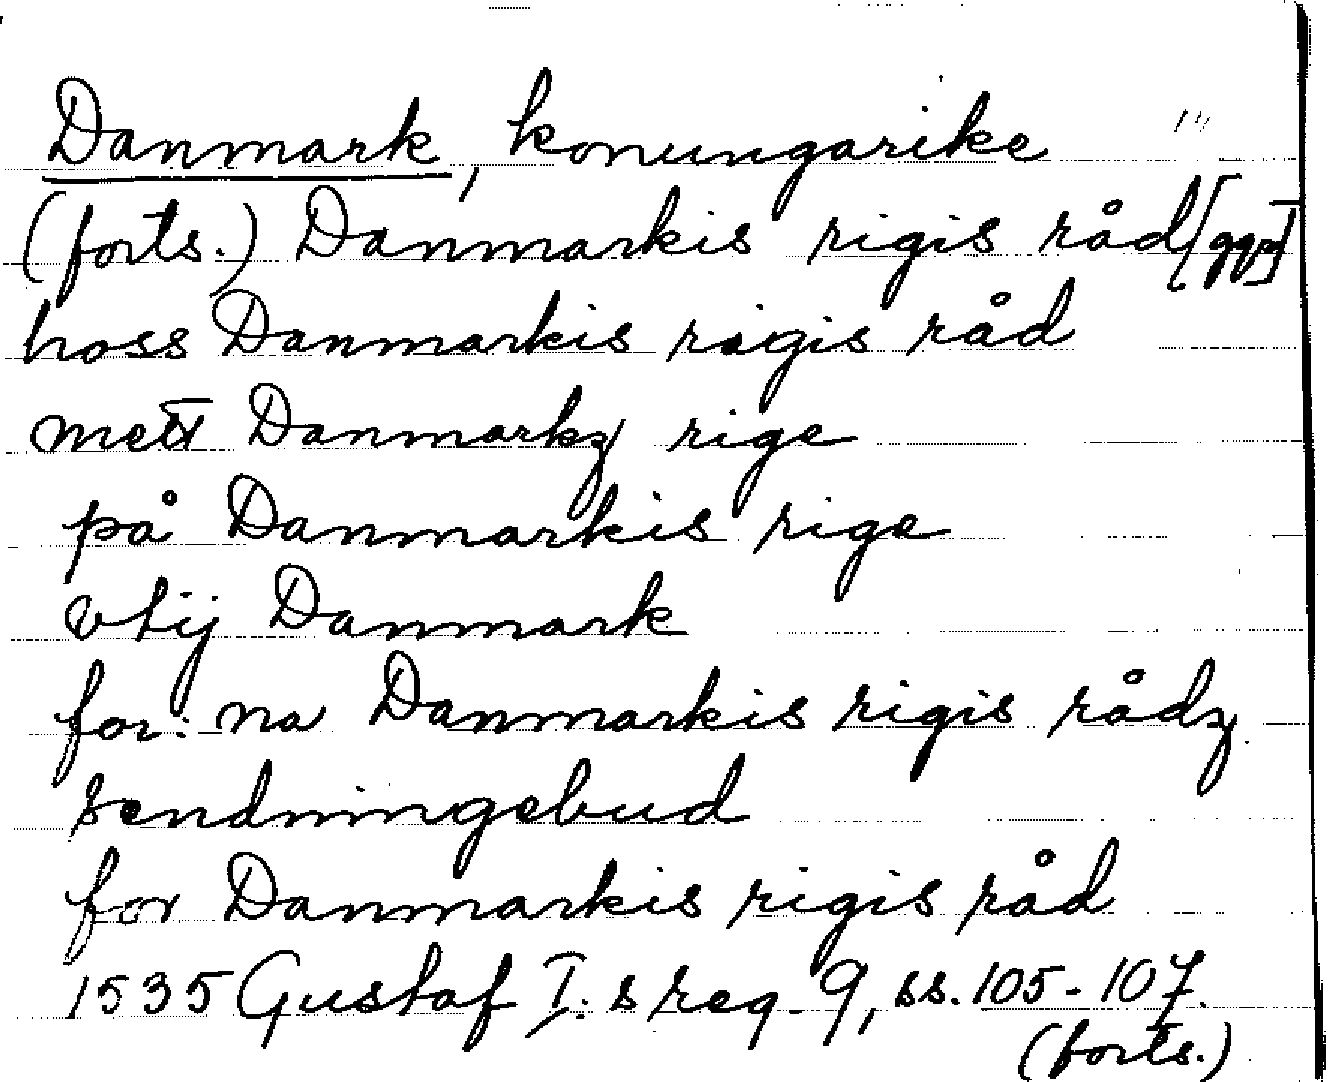 Danmark, konungarike
(forts.) Danmarkis rigis råd [ggr]
hoss Danmarkis rigis råd
mett Danmarkz rige
på Danmarkis rige
vtij Danmark
for: na Danmarkis rigis rådz
sendningebud
for Danmarkis rigis råd
1535 Gustaf I:s reg. 9, ss. 105-107.
(forts.)